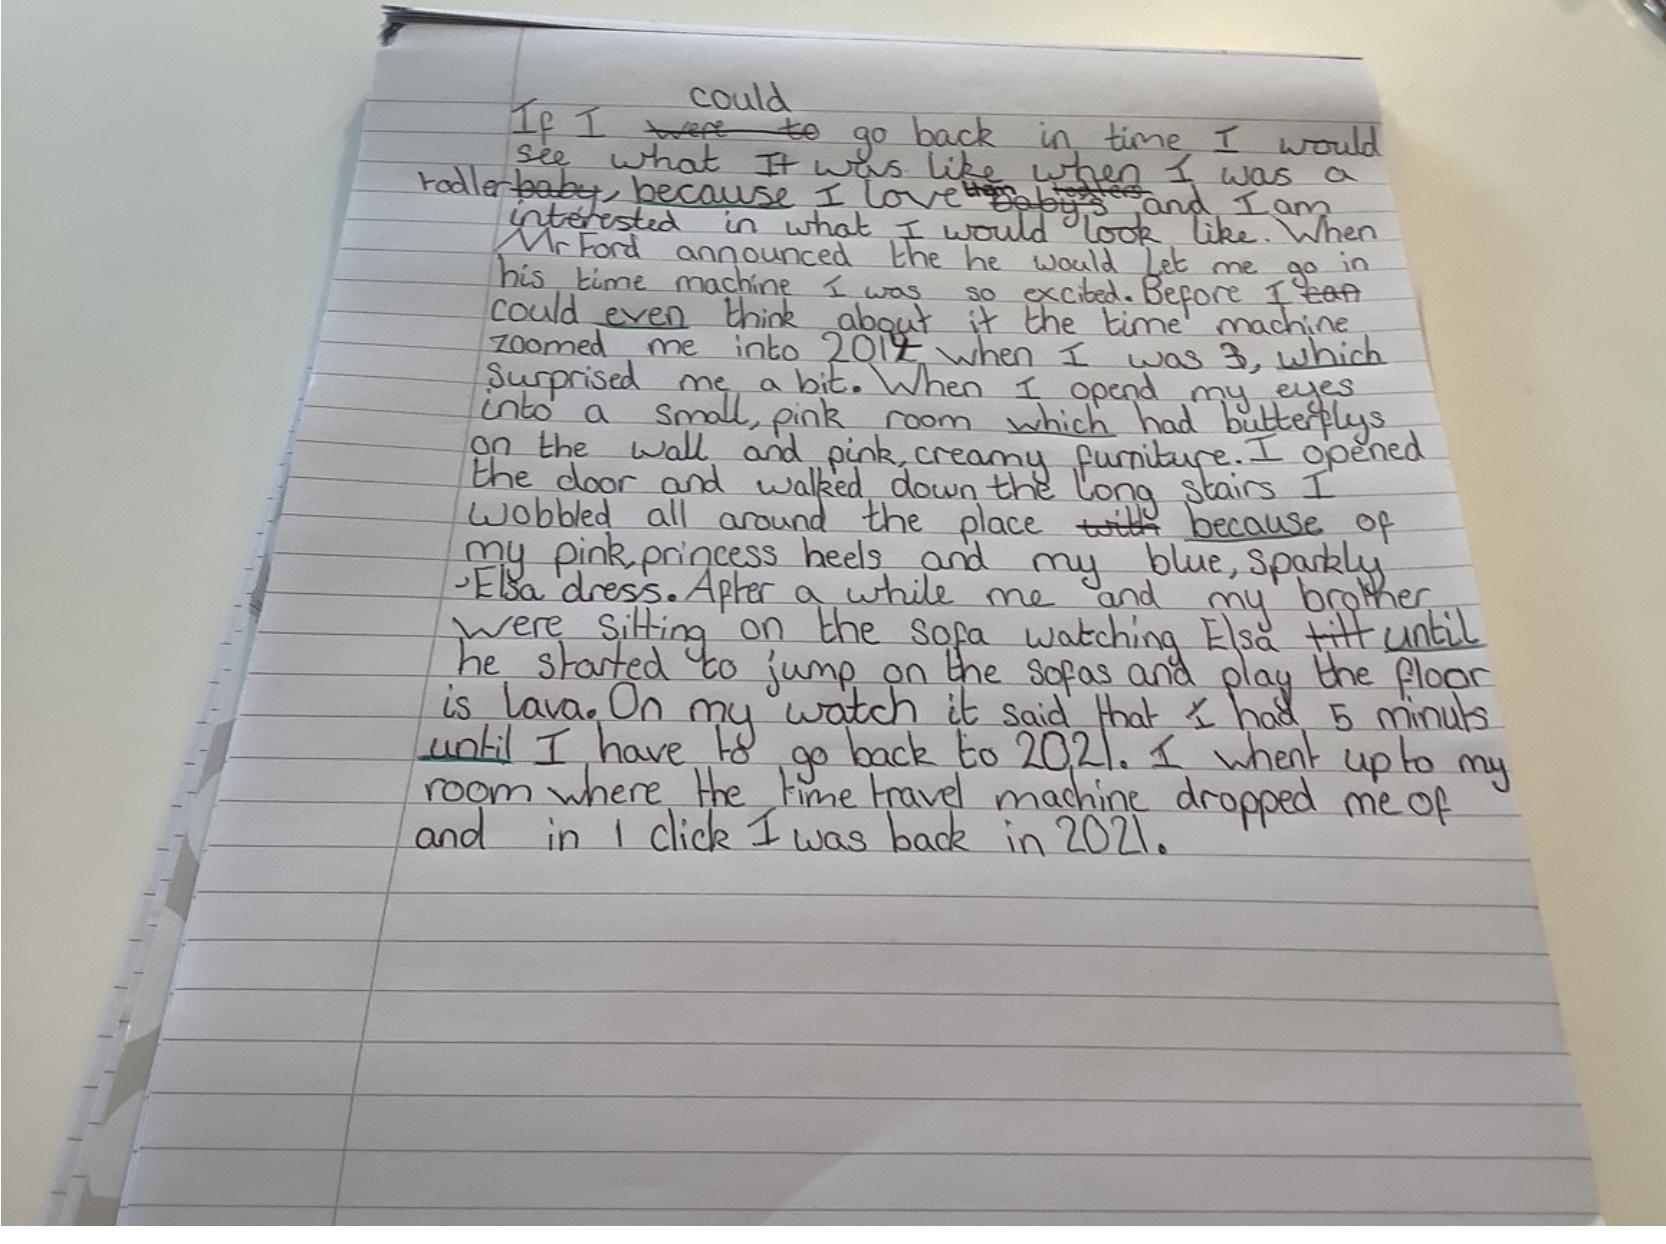 could
If I were to go back in time I would
see what It was like when I was a
rodler baby, because I love baby's and I am
interested in what I would look like. When
Mr Ford announced the he would let me go in
his time machine I was so excited. Before I can
could even think about it the time machine
zoomed me into 2014 when I was 3, which
surprised me a bit. When I opend my eyes
into a small, pink room which had butterflys
on the wall and pink, creamy furniture. I opened
the door and walked down the long stairs I
wobbled all around the place with because of
my pink, princess heels and my blue, sparkly
-Elsa dress. After a while me and my brother
were sitting on the sofa watching Elsa till until
he started to jump on the sofas and play the floor
is lava. On my watch it said that I had 5 minuts
until I have to go back to 2021. I whent up to my
room where the time travel machine dropped me of
and in 1 click I was back in 2021.